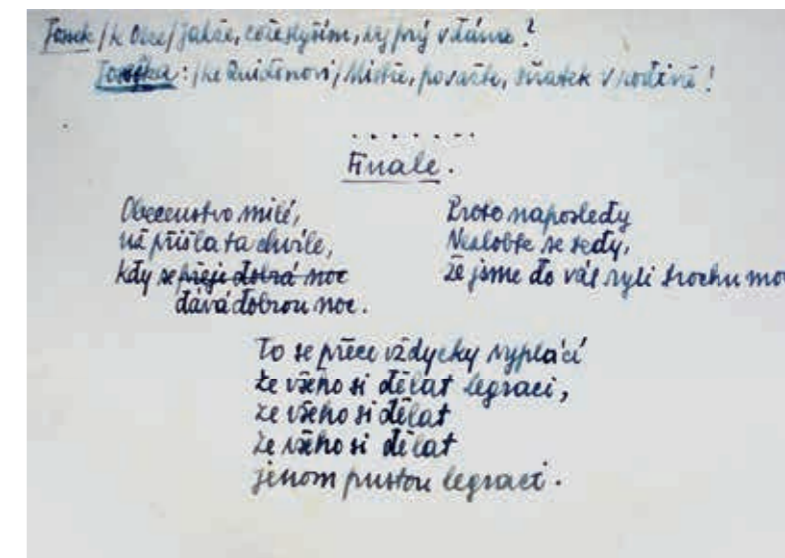 /k Olze/ Jakže, co to slyším, vy prý vdáma?
Josefka: /ke Quidonovi/ Mistře, považte, sňatek v rodině!
.......
Finale.
Obecenstvo milé,
už přišla ta chvíle,
kdy se přeje dobrá noc
dává dobrou noc.
Proto naposledy
Nezlobte se tedy,
že jsme do vás ryli trochu moc
To se přece vždycky vyplácí
ze všeho si dělat legraci,
ze všeho si dělat
ze všeho si dělat
jenom pustou legraci.